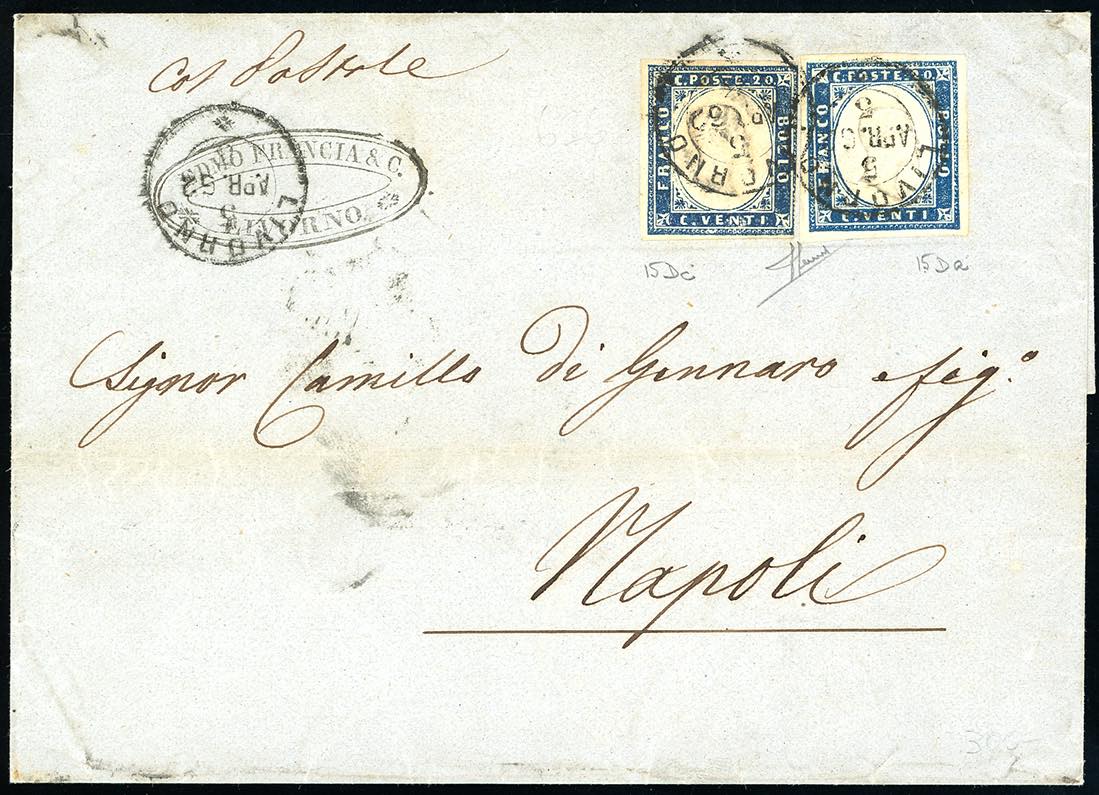 Col Postale
C. POSTE 20
FRANCO
BOLLO
C. VENTI
C. POSTE 20
FRANCO
BOLLO
C. VENTI
LIVORNO
5
APR. 62
FRANCIA & C.
LIVORNO
LIVORNO
LIVORNO
5
APR. 6
15Dc
15Da
Signor Camillo di Gennaro e fig.º
Napoli